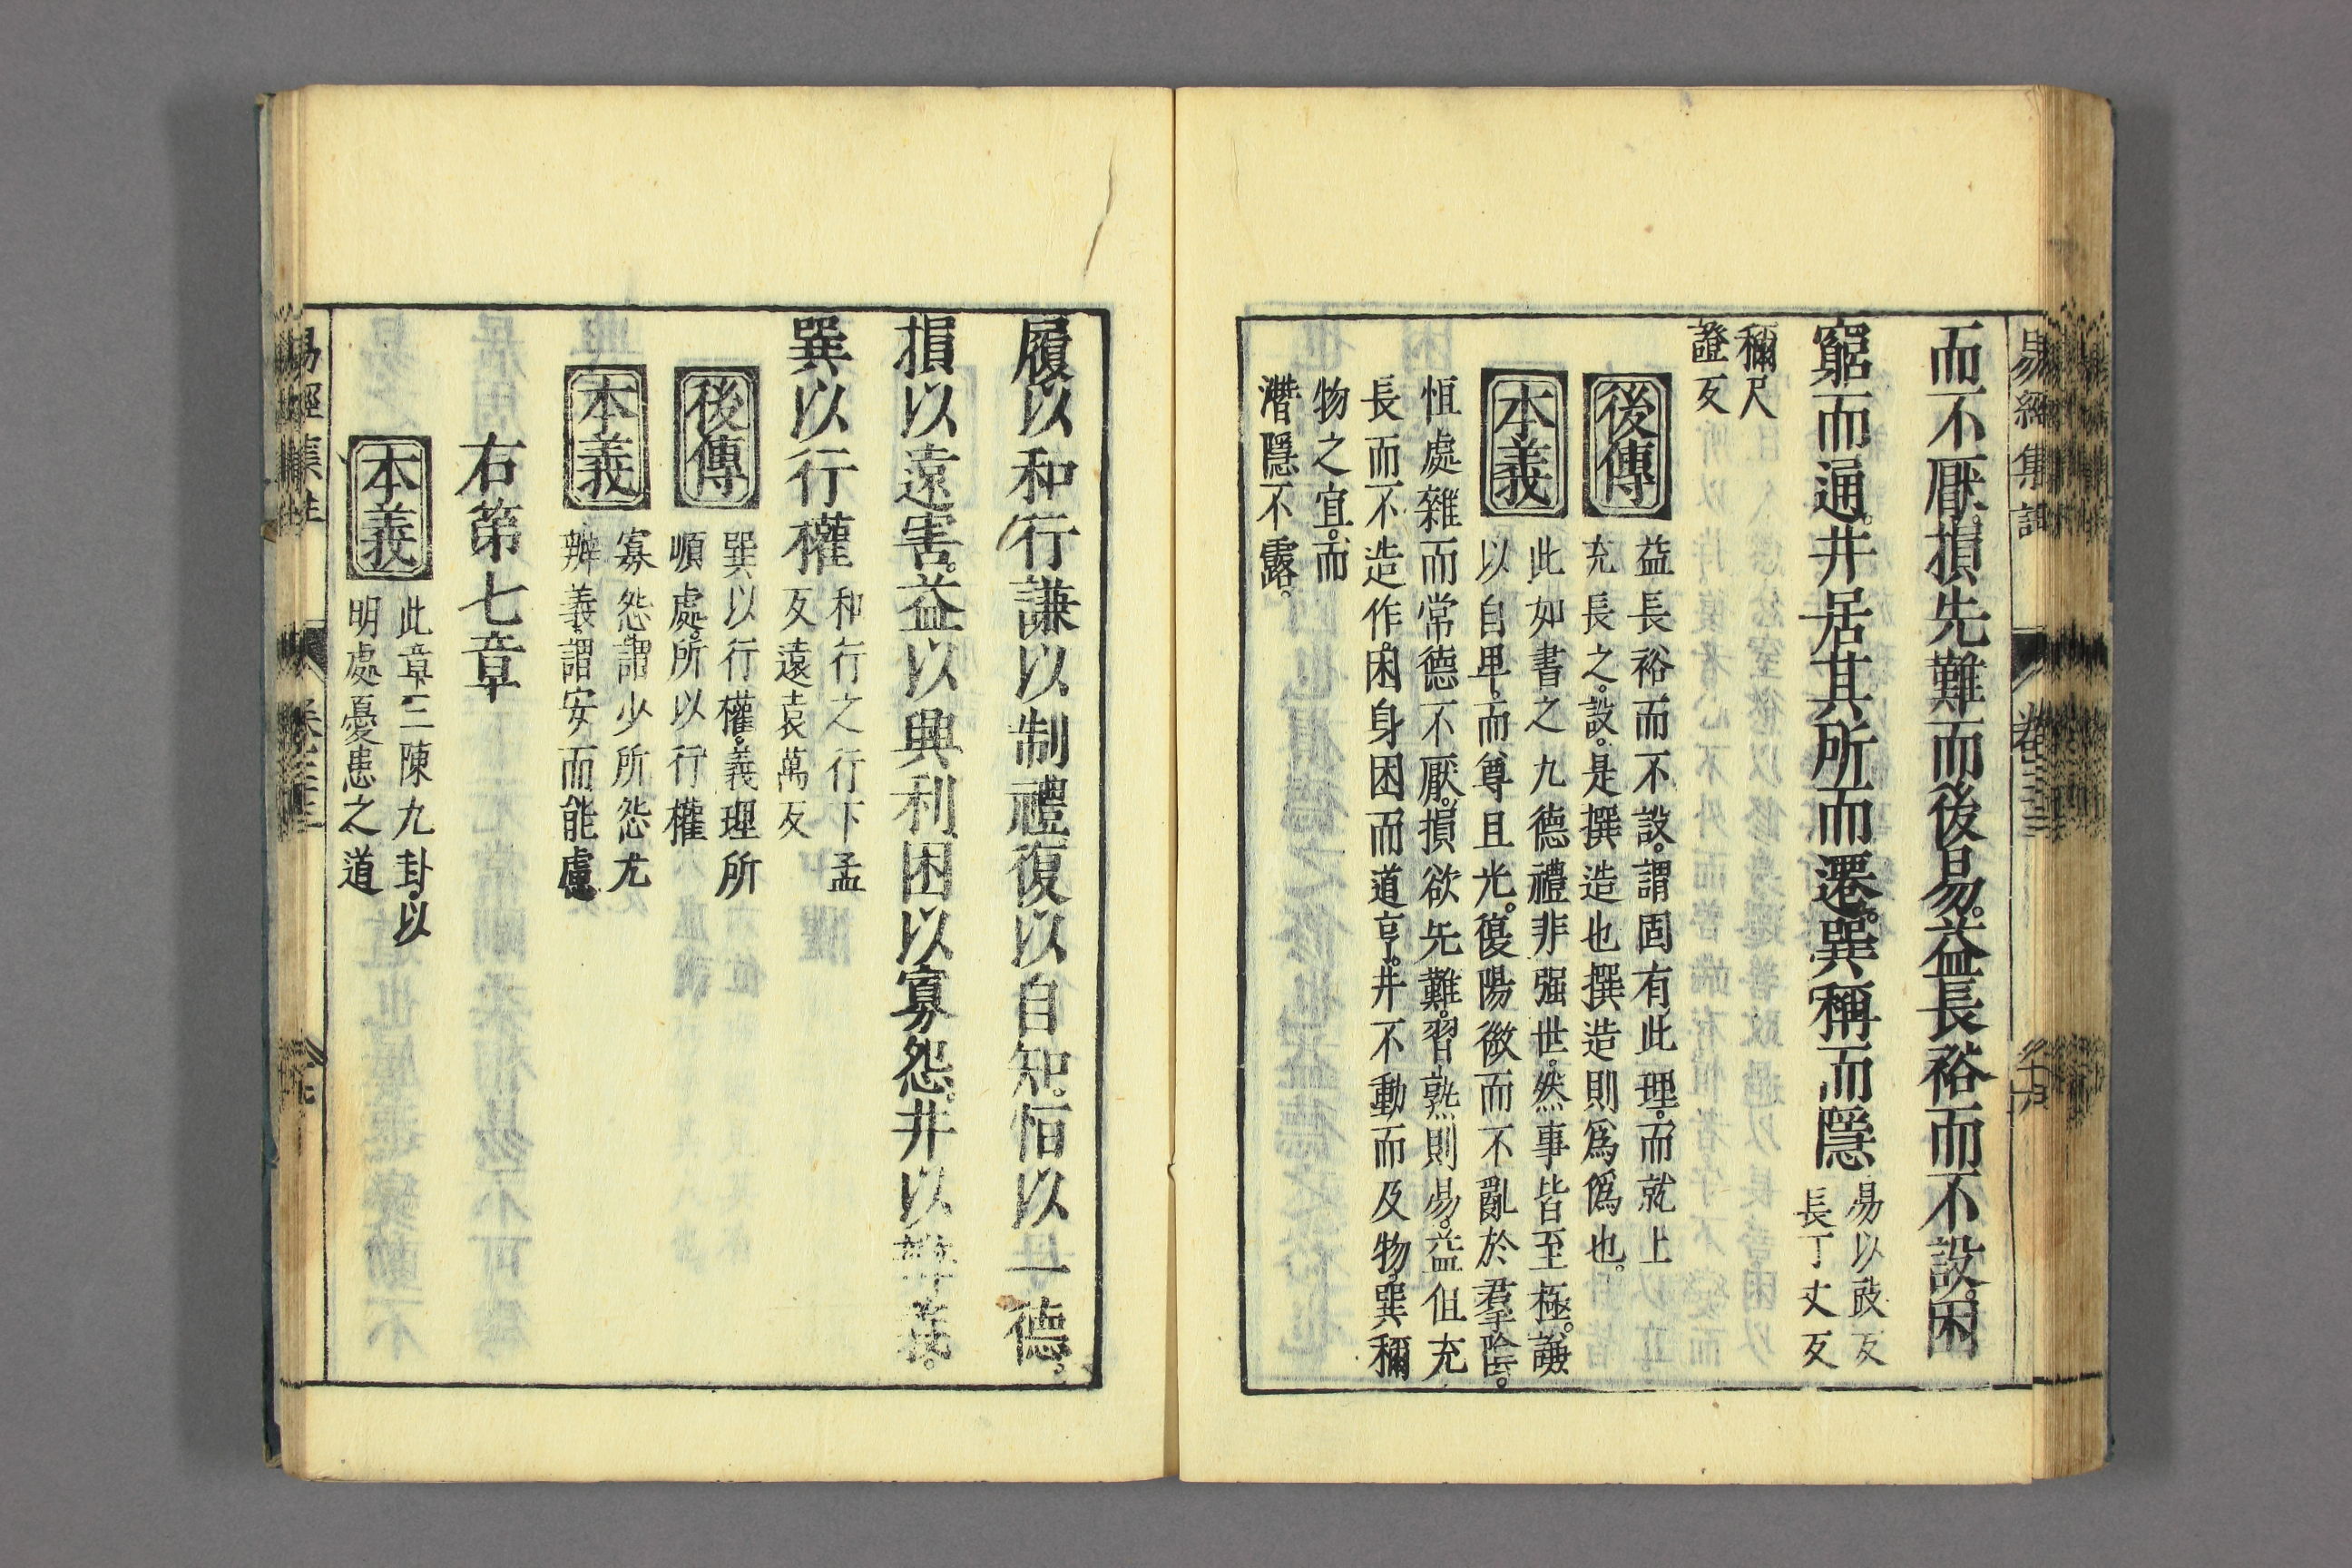 易經集註 卷二十三 二十六
而不厭損先難而後易。益長裕而不設。困
窮而通。井居其所而遷。巽稱而隱
易以豉反
長丁丈反
稱尺
證反
後傳
益長裕而不設。謂固有此理。而就上
充長之。設。是撰造也撰造則爲僞也。
本義
此如書之九德禮非强世。然事皆至極。謙
以自卑。而尊且光。復陽微而不亂於羣陰。
恒處雜而常德不厭。損欲先難。習熟則易。益但充
長而不造作。困身困而道亨。井不動而及物。巽稱
物之宜。而
潛隱不露。
履以和行謙以制禮復以自知。恒以一德。
損以遠害。益以興利困以寡怨。井以辯義。
巽以行權
和行之行下孟
反遠袁萬反
後傳
巽以行權。義理所
順處。所以行權
本義
寡怨。謂少所怨尤
辨義。謂安而能慮
右第七章
本義
此章三陳九卦。以
明處憂患之道
易經集註